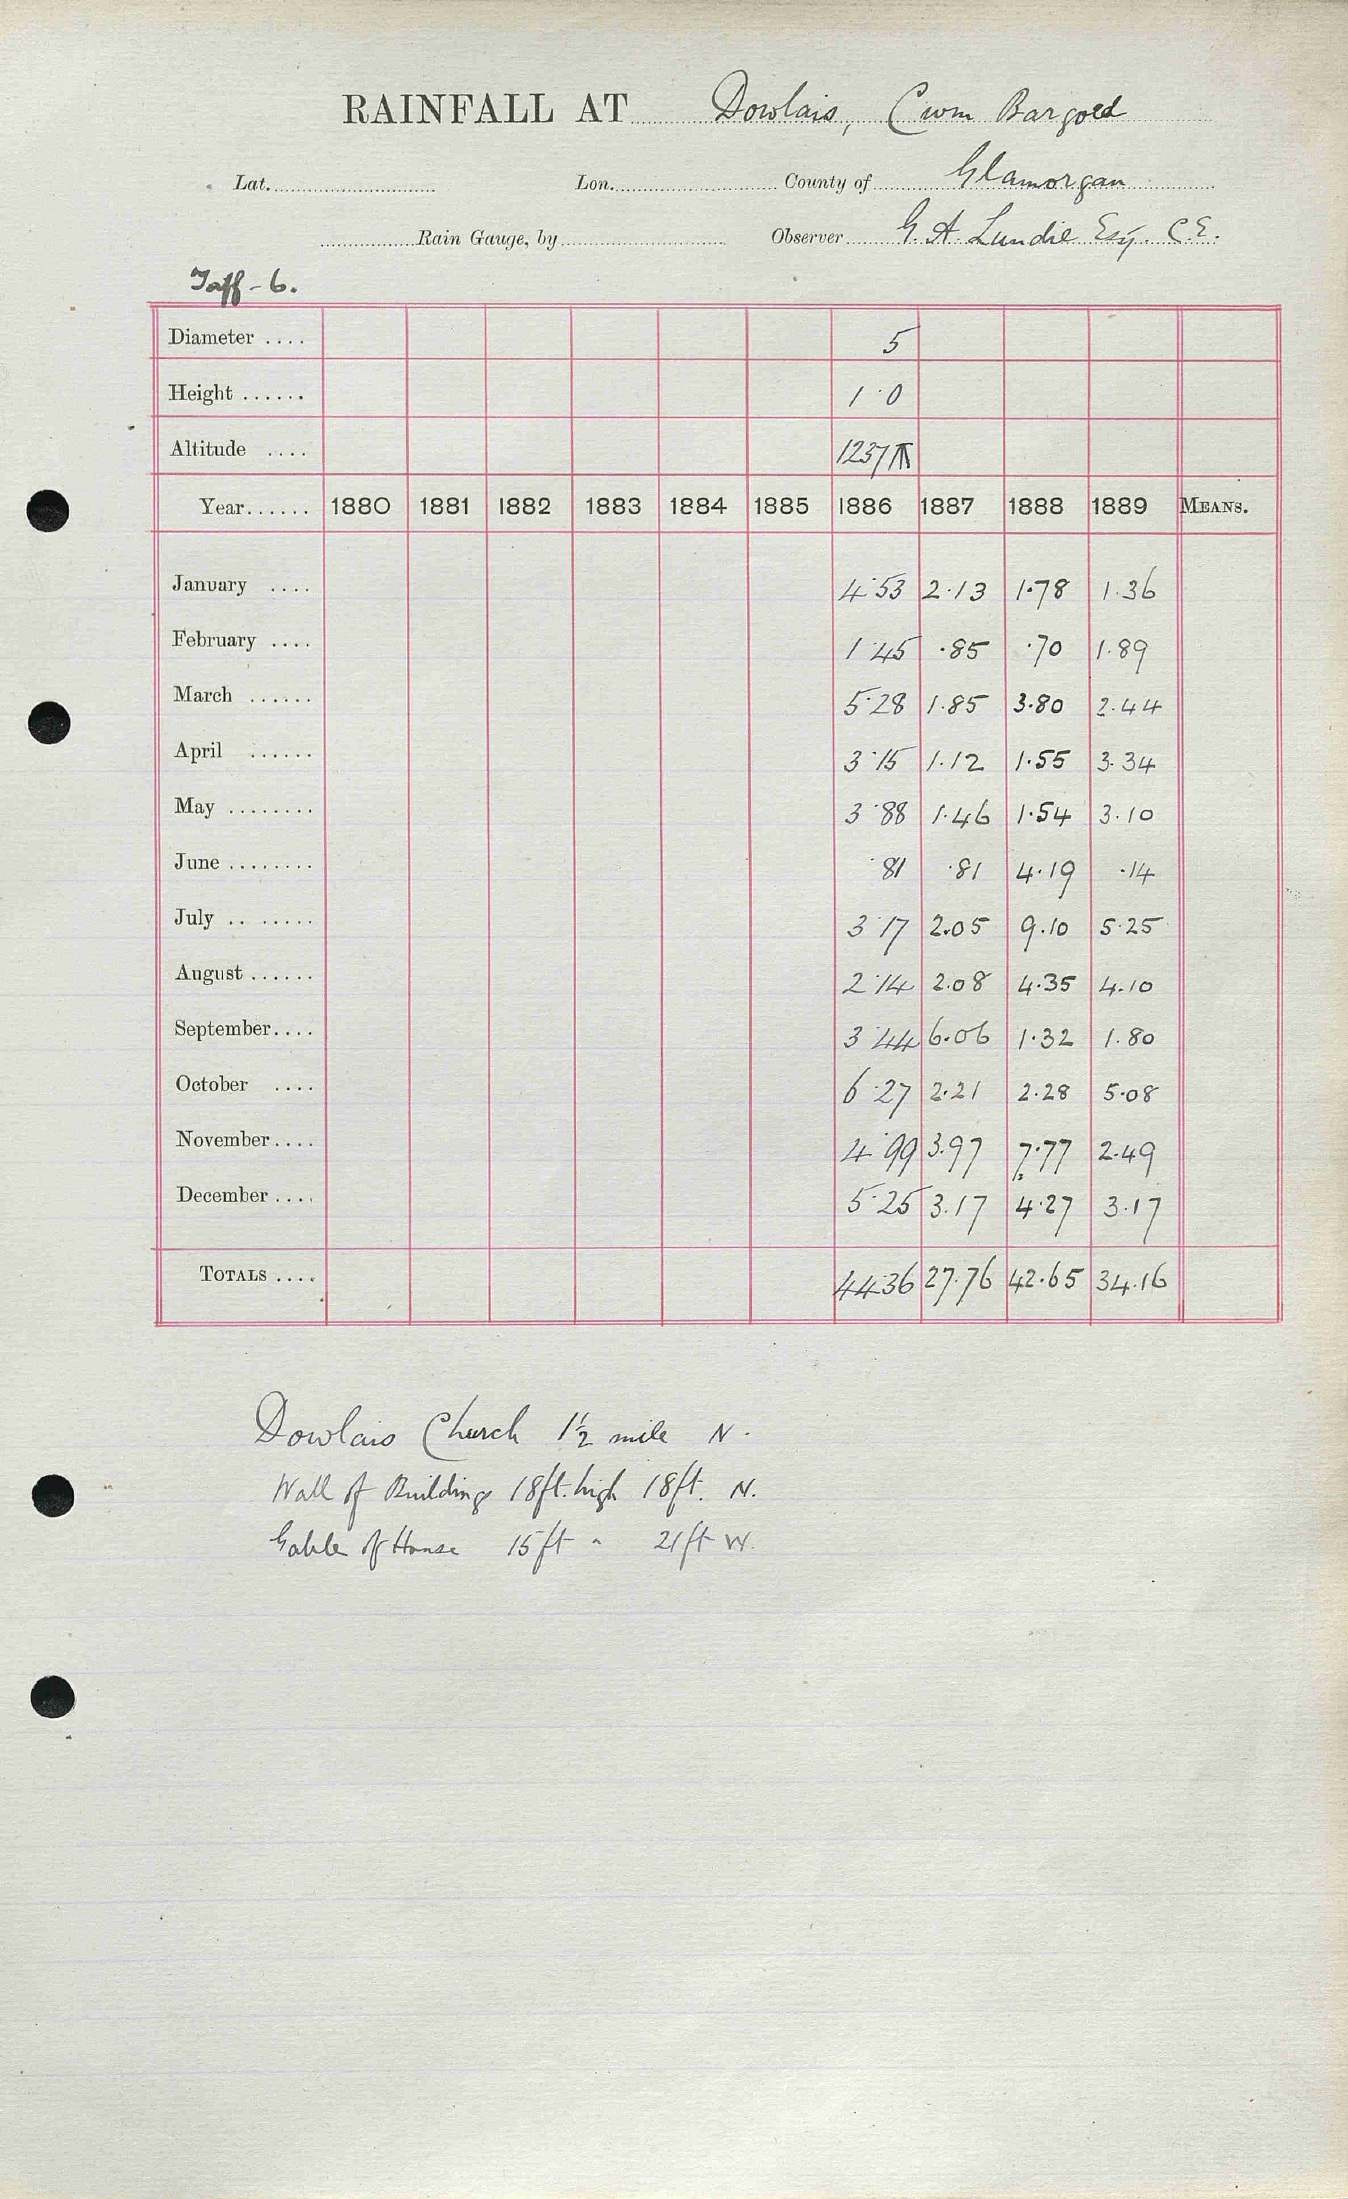 RAINFALL AT Dowlais, Cwm Bargoed
Lat. Lon. County of Glamorgan
Rain Gauge, by Observer G. A. Lundie Esq. C.E.
Taff-6.
Diameter .... 5
Height ...... 1·0
Altitude .... 1237
Year...... 1880 1881 1882 1883 1884 1885 1886 1887 1888 1889 MEANS.
January .... 4·53 2·13 1·78 1·36
February .... 1·45 ·85 ·70 1·89
March ...... 5·28 1·85 3·80 2·44
April ...... 3·15 1·12 1·55 3·34
May ........ 3·88 1·46 1·54 3·10
June ........ ·81 ·81 4·19 ·14
July .. ...... 3·17 2·05 9·10 5·25
August ...... 2·14 2·08 4·35 4·10
September.... 3·44 6·06 1·32 1·80
October .... 6·27 2·21 2·28 5·08
November.... 4·99 3·97 7·77 2·49
December .... 5·25 3·17 4·27 3·17
TOTALS .... 44·36 27·76 42·65 34·16
Dowlais Church 1½ mile N.
Wall of Buildings 18ft. high 18ft. N.
Gable of House 15ft " 21ft W.